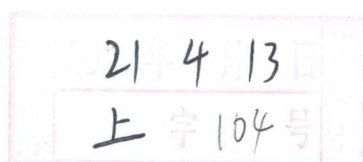 21年4月13日
上字104号